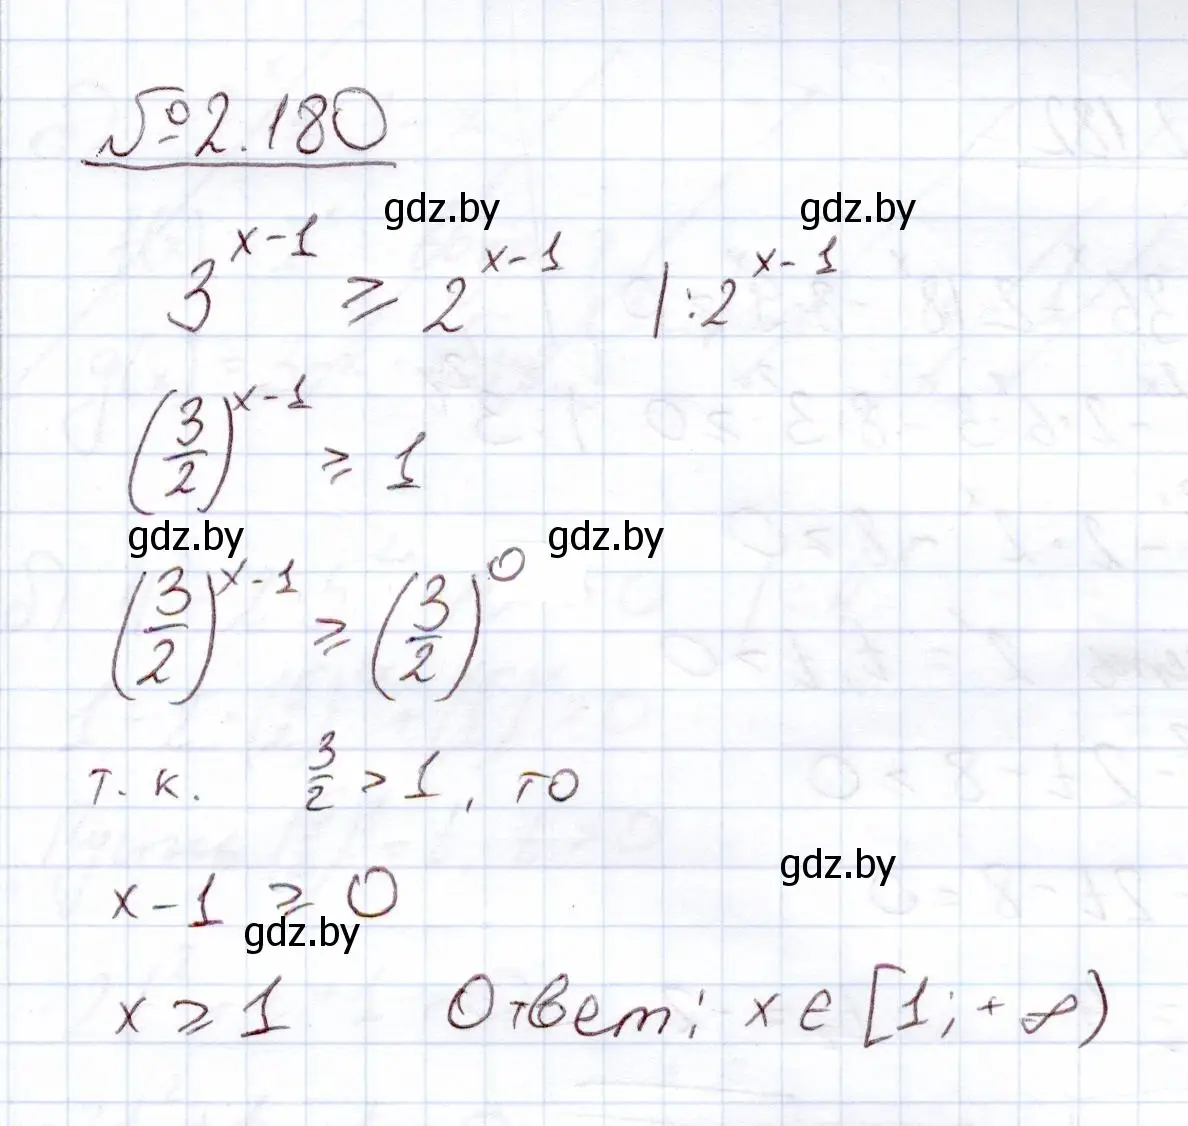 № 2.180
gdz.by gdz.by
3^{x-1} ≥ 2^{x-1} | : 2^{x-1}
(3/2)^{x-1} ≥ 1
gdz.by gdz.by
(3/2)^{x-1} ≥ (3/2)^0
т. к. 3/2 > 1, то
gdz.by
x-1 ≥ 0
gdz.by
x ≥ 1 Ответ: x ∈ [1; +∞)